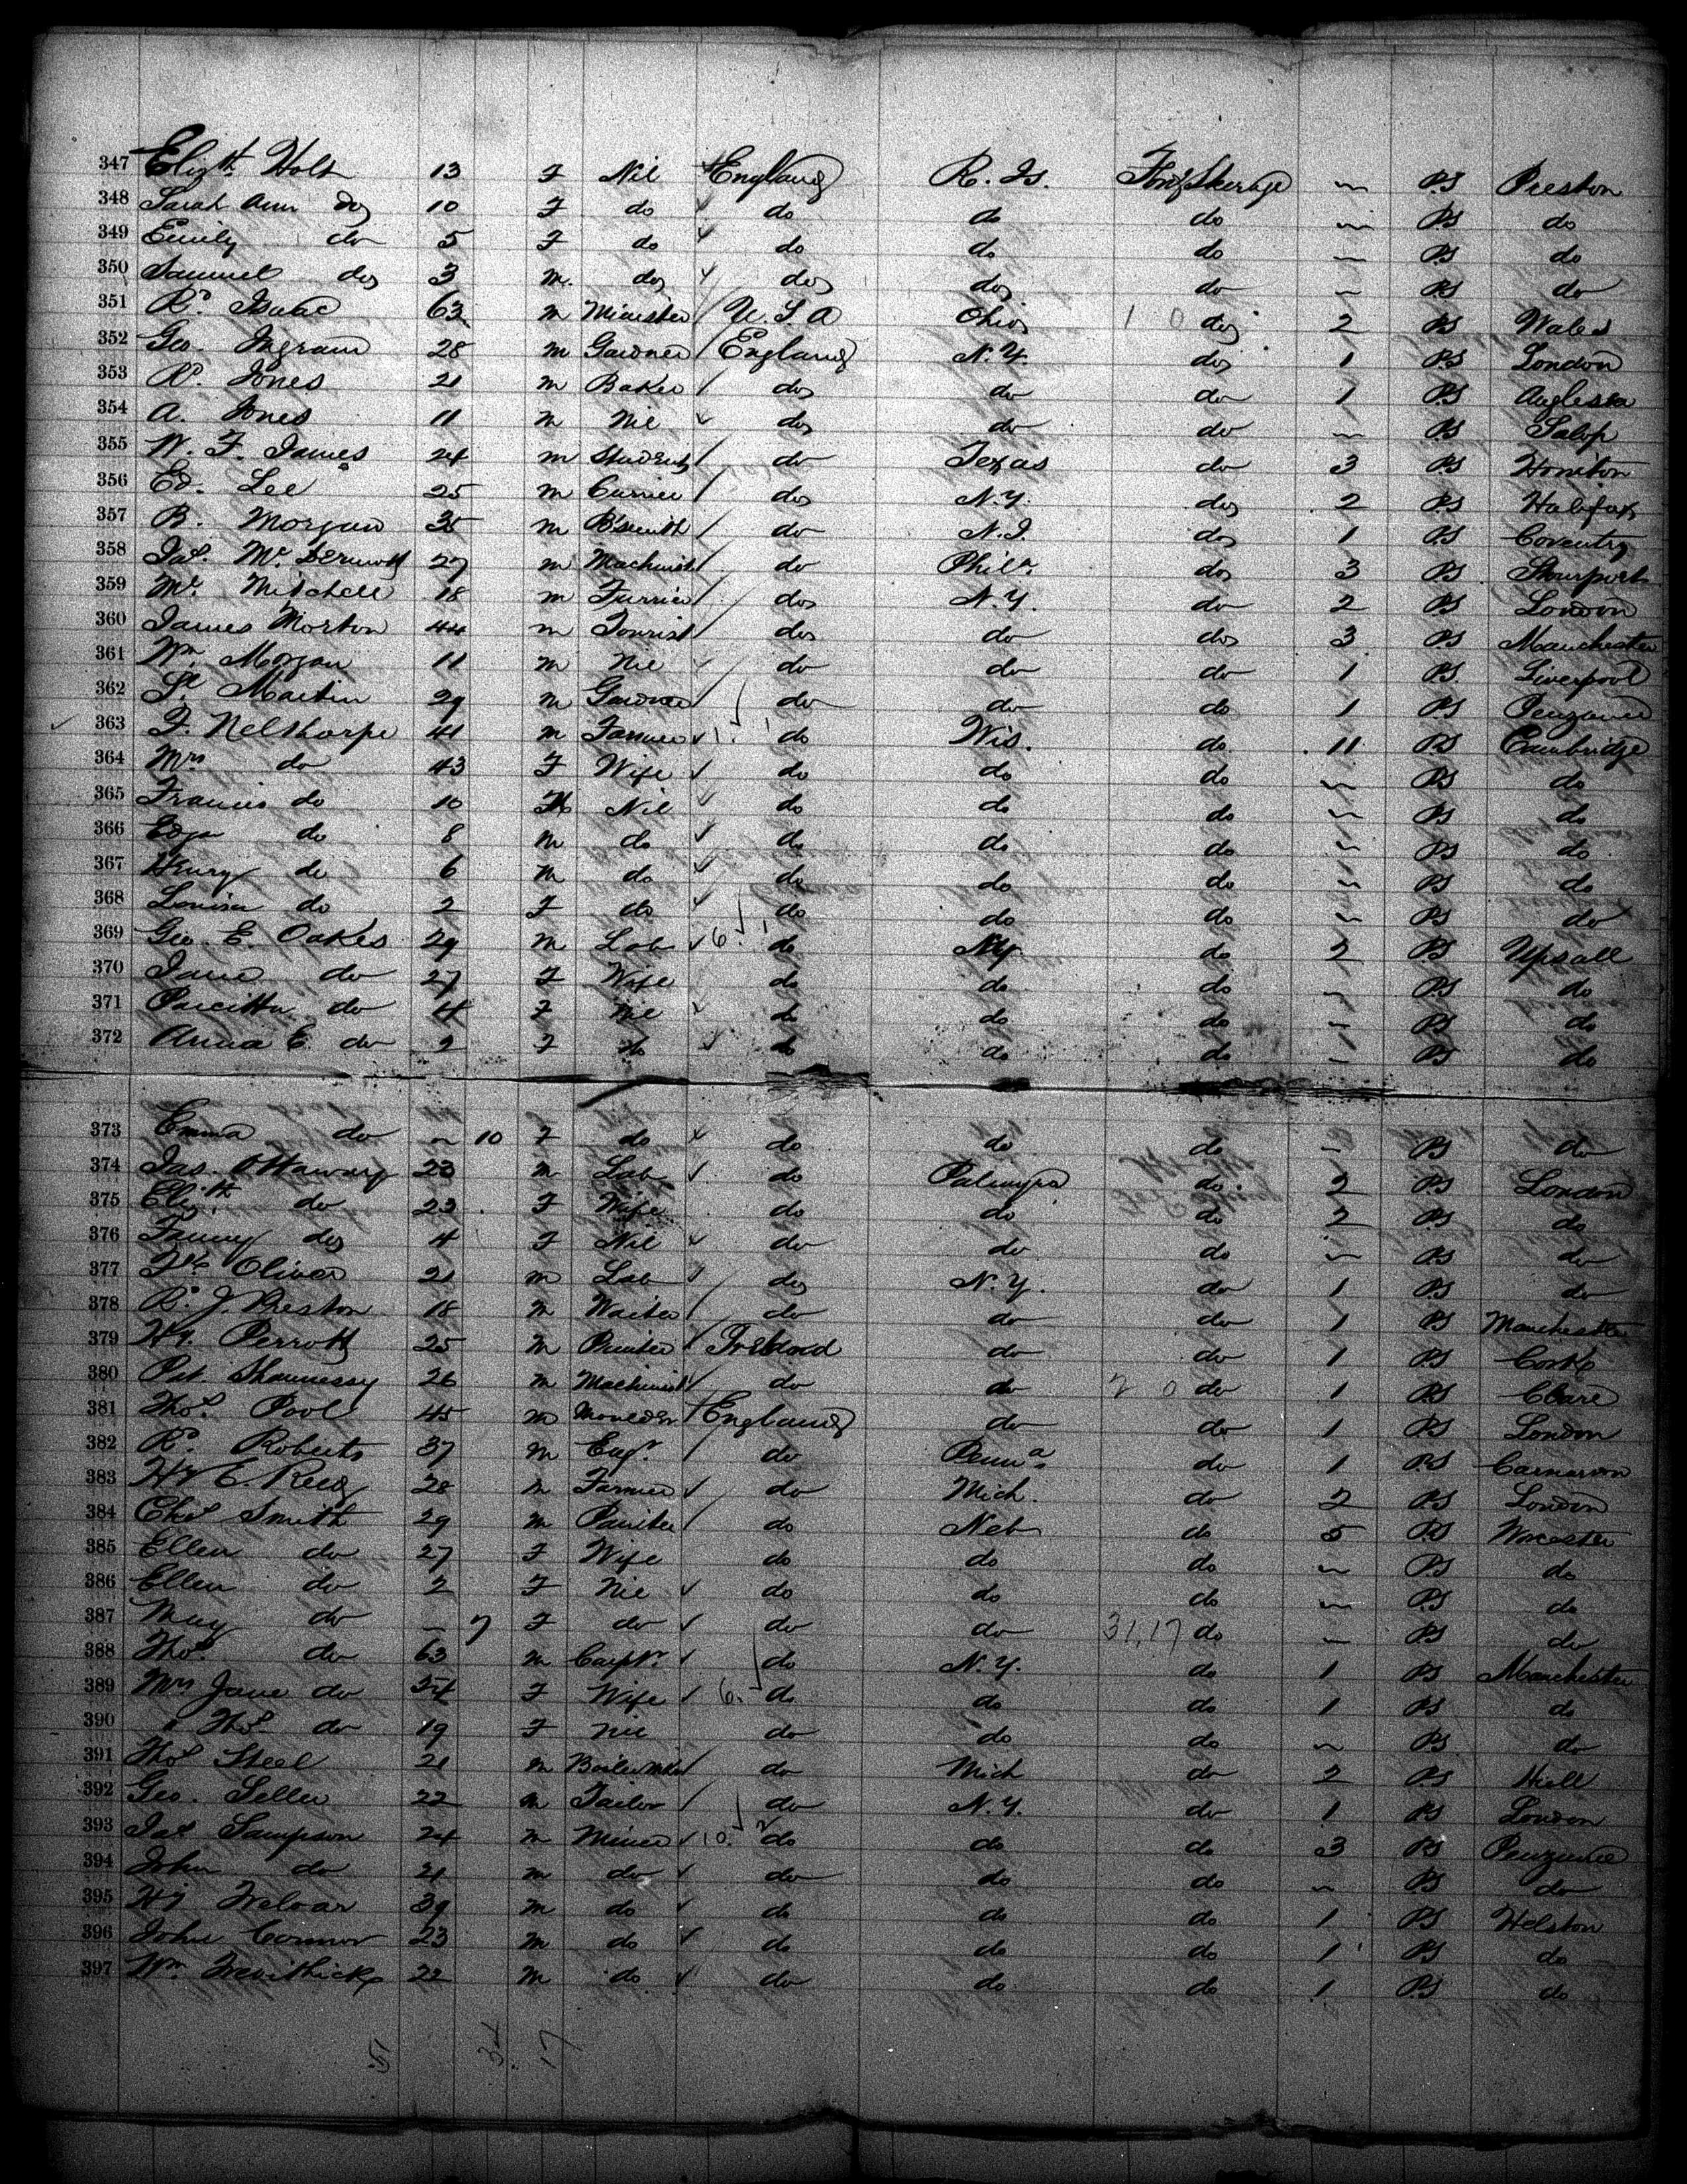 347 Elizth Holt 13 F Nil England R. Is. Fore Steerage ~ P.S Preston
348 Sarah Ann do 10 F do do do do ~ P.S do
349 Emily do 5 F do do do do ~ P.S do
350 Samuel do 3 m do do do do ~ P.S do
351 Rd. Isaac 63 m Minister U.S.A Ohio 1 0 do 2 P.S Wales
352 Geo. Ingram 28 m Gardner England N.Y. do 1 P.S London
353 Rd. Jones 21 m Baker do do do 1 P.S Anglesea
354 A. Jones 11 m Nil do do do ~ P.S Salop
355 W. F. James 24 m Student do Texas do 3 P.S Honiton
356 Ed. Lee 25 m Currier do N.Y. do 2 P.S Halifax
357 B. Morgan 35 m B'smith do N.J. do 1 P.S Coventry
358 Jas. McDermott 27 m Machinist do Phila. do 3 P.S Stourport
359 Mr. Mitchell 18 m Furrier do N.Y. do 2 P.S London
360 James Morton 44 m Tourist do do do 3 P.S Manchester
361 Wm. Morgan 11 m Nil do do do 1 P.S Liverpool
362 Martin 29 m Gardner do do do 1 P.S Penzance
363 F. Nelthorpe 41 m Farmer 1. do Wis. do 11 P.S Cambridge
364 Mrs do 43 F Wife do do do ~ P.S do
365 Francis do 10 Nil do do do ~ P.S do
366 Edgr do 8 m do do do do ~ P.S do
367 Henry do 6 m do do do do ~ P.S do
368 Louisa do 2 F do do do do ~ P.S do
369 Geo. E. Oakes 29 m Lab 6. do NY do 2 P.S Upsall
370 Jane do 27 F Wife do do do ~ P.S do
371 do 4 F Nil do do do ~ P.S do
372 Anna E. do 2 F do do do do ~ P.S do
373 Emma do ~ 10 F do do do do ~ P.S do
374 Jas. Ottaway 23 m Lab do Palmyra do 2 P.S London
375 Elizth do 23 F Wife do do do 2 P.S do
376 Fanny do 4 F Nil do do do ~ P.S do
377 Oliver 21 m Lab do N.Y. do 1 P.S do
378 R. J. Preston 18 m Waiter do do do 1 P.S Manchester
379 Hy. Perrott 25 m Printer Ireland do do 1 P.S Cork
380 Pat. Shaunessy 26 m Machinist do do 2 0 do 1 P.S Clare
381 Thos. Pool 45 m Moulder England do do 1 P.S London
382 Rd. Roberts 37 m Engr. do Penna. do 1 P.S Carnarvon
383 Hy E. Reed 28 m Farmer do Mich. do 2 P.S London
384 Chas Smith 29 m Painter do Neb do 5 P.S Worcester
385 Ellen do 27 F Wife do do do ~ P.S do
386 Ellen do 2 F Nil do do do ~ P.S do
387 May do ~ 7 F do do do 31,17 do ~ P.S do
388 Thos. do 63 m Carptr. do N.Y. do 1 P.S Manchester
389 Mrs Jane do 54 F Wife 6. do do do 1 P.S do
390 " Thos do 19 F Nil do do do ~ P.S do
391 Thos Steel 21 m Boilermkr do Mich do 2 P.S Hull
392 Geo. Seller 22 m Tailor do N.Y. do 1 P.S London
393 Jas Sampson 24 m Miner 10. 2 do do do 3 P.S Penzance
394 John do 21 m do do do do ~ P.S do
395 Hy Weloar 39 m do do do do 1 P.S Helston
396 John Connor 23 m do do do do 1 P.S do
397 Wm. Trevithick 22 m do do do do 1 P.S do
17